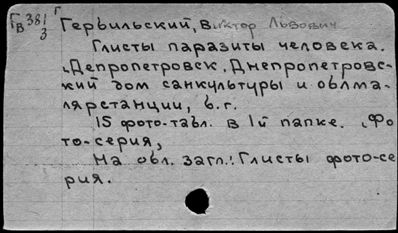 Г 381 Г
В 3
Гербильский, Виктор Львович
Глисты паразиты человека.
Депропетровск, Днепропетровс-
кий дом санкультуры и облма-
лярстанции, б.г.
15 фото-табл. в 1й папке. (Фо
то-серия,
На обл. загл.: Глисты фото-се
рия.